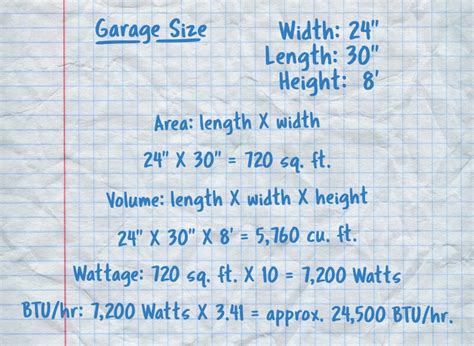 Garage Size
Width: 24"
Length: 30"
Height: 8'
Area: length X width
24" X 30" = 720 sq. ft.
Volume: length X width X height
24" X 30" X 8' = 5,760 cu. ft.
Wattage: 720 sq. ft. X 10 = 7,200 Watts
BTU/hr: 7,200 Watts X 3.41 = approx. 24,500 BTU/hr.